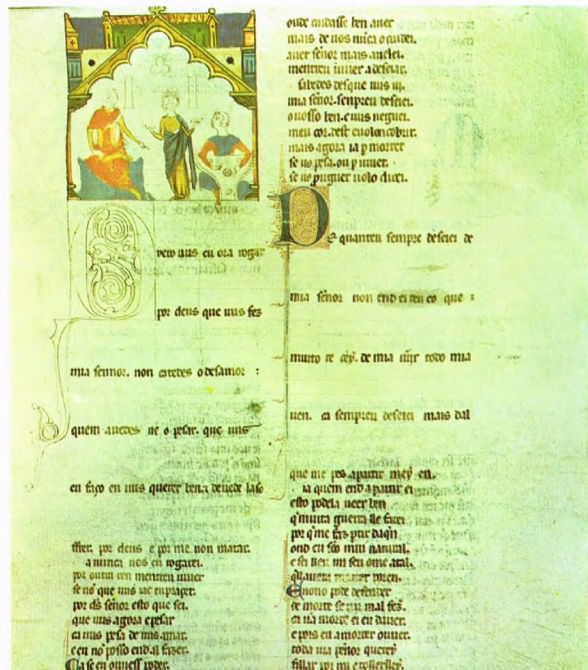 Quero uus eu ora rogar
por deus que uus fez
mia sennor. non catedes o desamor :
quem auedes ne o pesar. que uus
eu faço en uus querer ben. e deuede la so
ffrer. por deus e por me non matar.
a nunca uos eu rogarei.
por outra ren mentreu uiuer
se no que uus
por ds señor esto que sei.
que uus agora e pesar
ca uus pesa de uus amar.
e eu no posso end al fazer.
Ca se eu ouuess poder.
oude cuidasse ben auer
mais de uos nuca o cuidei.
auer señor mais
mentreu uiuer a deseiar.
sabedes des que uus ui.
mia señor. sempreu deseiei
o uosso ben. e uus neguei.
meu cor. dest e uolo encobrir.
mais agora ia p morrer
se us pesa. ou p uiuer.
se us prouguer uolo direi.
De quanteu sempre deseiei de
mia señor non end ei ren co que :
muito re cey. de mia uijr todo mia
uen. ca sempreu deseiei mais dal
que me pos a partir mey en.
ia quem end a partir ei
esto podela ueer ben
q muita guerra lle farei
por q me faz ptir daqn
ond eu sõo mui natural.
e sei ueer mi seu ome atal.
E nono pode defender
de morte se mi mal fez.
ca na morte ei eu dauer.
e pois eu a morrer ouuer.
toda mia pñor querey
fillar por mi e tollerlley.